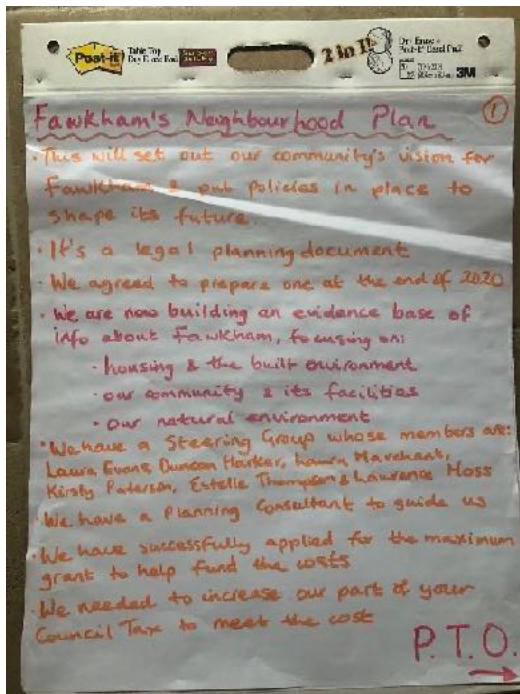 Post-it
Table Top
2 in 1!
3M
Fawkham's Neighbourhood Plan
1
• This will set out our community's vision for
Fawkham & put policies in place to
shape its future.
• It's a legal planning document
• We agreed to prepare one at the end of 2020
• We are now building an evidence base of
info about Fawkham, focusing on:
• housing & the built environment
• our community & its facilities
• our natural environment
• We have a Steering Group whose members are:
Laura Evans, Duncan Harker, Laura Marchant,
Kirsty Paterson, Estelle Thompson & Laurence Moss
• We have a Planning Consultant to guide us
• We have successfully applied for the maximum
grant to help fund the costs
• We needed to increase our part of your
Council Tax to meet the cost
P.T.O.